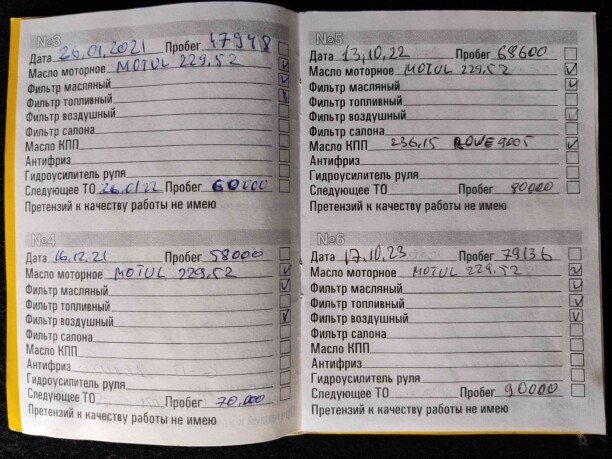 №3
Дата 26.01.2021 Пробег 47948
Масло моторное MOTUL 229,52
Фильтр масляный
Фильтр топливный
Фильтр воздушный
Фильтр салона
Масло КПП
Антифриз
Гидроусилитель руля
Следующее ТО 26.01.22 Пробег 60000
Претензий к качеству работы не имею
№4
Дата 16.12.21 Пробег 58000
Масло моторное MOTUL 229,52
Фильтр масляный
Фильтр топливный
Фильтр воздушный
Фильтр салона
Масло КПП
Антифриз
Гидроусилитель руля
Следующее ТО Пробег 70.000
Претензий к качеству работы не имею
№5
Дата 13,10,22 Пробег 68600
Масло моторное MOTUL 229,52
Фильтр масляный
Фильтр топливный
Фильтр воздушный
Фильтр салона
Масло КПП 236,15 ROWE 9005
Антифриз
Гидроусилитель руля
Следующее ТО Пробег 80000
Претензий к качеству работы не имею
№6
Дата 17,10,23 Пробег 79136
Масло моторное MOTUL 229,52
Фильтр масляный
Фильтр топливный
Фильтр воздушный
Фильтр салона
Масло КПП
Антифриз
Гидроусилитель руля
Следующее ТО Пробег 90000
Претензий к качеству работы не имею